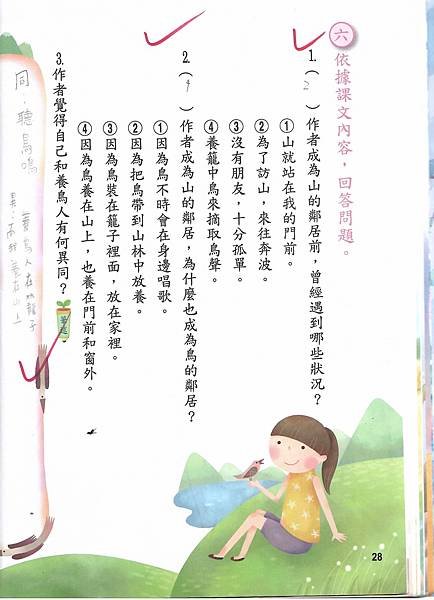 六 依據課文內容，回答問題。
1.（2）作者成為山的鄰居前，曾經遇到哪些狀況？
①山就站在我的門前。
②為了訪山，來往奔波。
③沒有朋友，十分孤單。
④養籠中鳥來摘取鳥聲。
2.（4）作者成為山的鄰居，為什麼也成為鳥的鄰居？
①因為鳥不時會在身邊唱歌。
②因為把鳥帶到山林中放養。
③因為鳥裝在籠子裡面，放在家裡。
④因為鳥養在山上，也養在門前和窗外。
3.作者覺得自己和養鳥人有何異同？
同：聽鳥鳴
異：養鳥人在籠子
養在山上
28